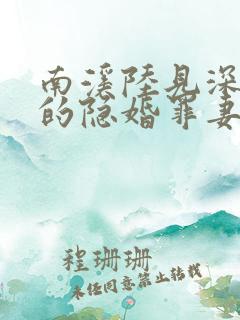 南溪陆见深
的隐婚罪妻
程珊珊
未经同意禁止转载